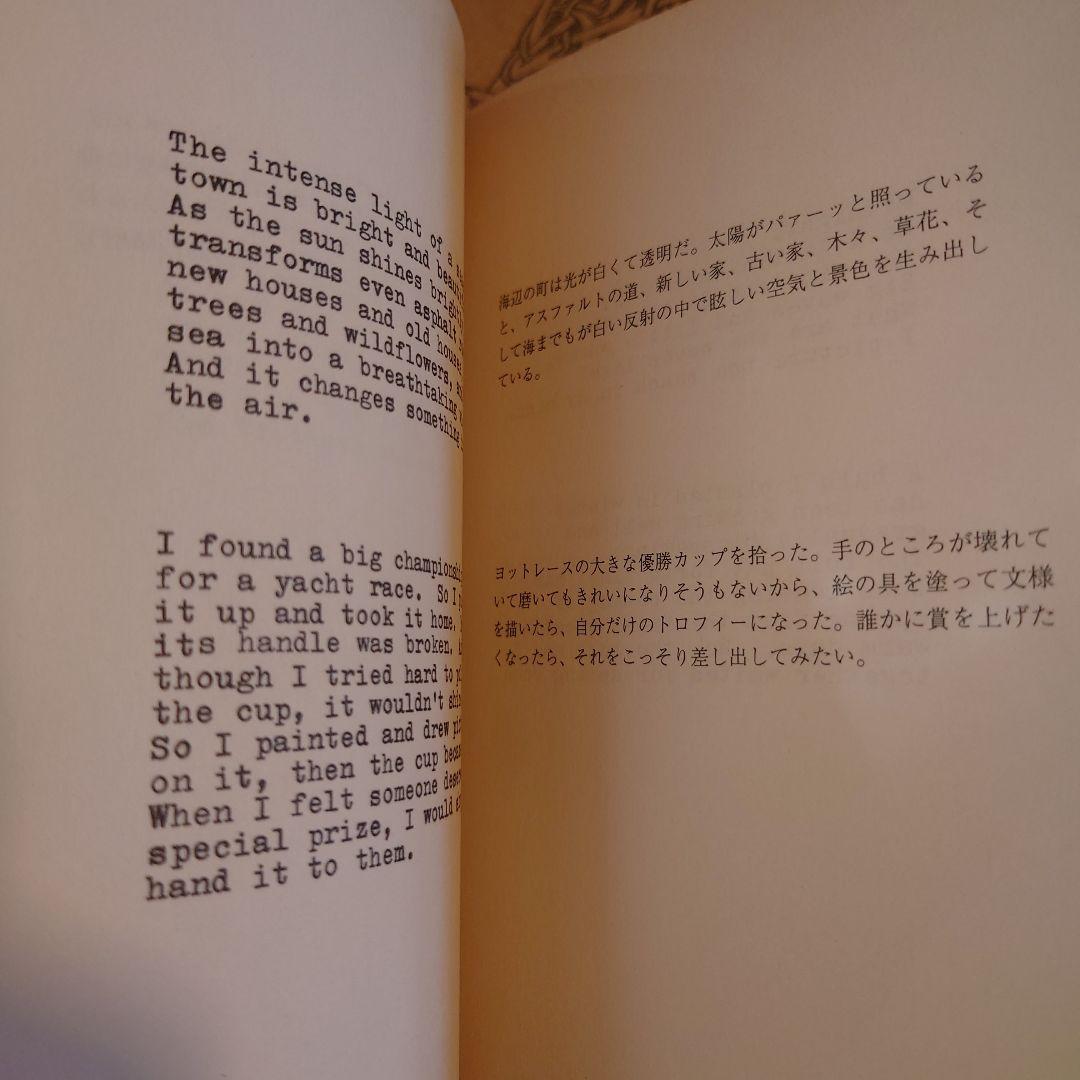 The intense light of a
town is bright and
As the sun shines
transforms even asphalt
new houses and old
trees and wildflowers,
sea into a breathtaking
And it changes something
the air.
I found a big
for a yacht race. So I
it up and took it home.
its handle was broken,
though I tried hard to
the cup, it wouldn't
So I painted and drew
on it, then the cup
When I felt someone
special prize, I would
hand it to them.
海辺の町は光が白くて透明だ。太陽がパァーッと照っている
と、アスファルトの道、新しい家、古い家、木々、草花、そ
して海までもが白い反射の中で眩しい空気と景色を生み出し
ている。
ヨットレースの大きな優勝カップを拾った。手のところが壊れて
いて磨いてもきれいになりそうもないから、絵の具を塗って文様
を描いたら、自分だけのトロフィーになった。誰かに賞を上げた
くなったら、それをこっそり差し出してみたい。